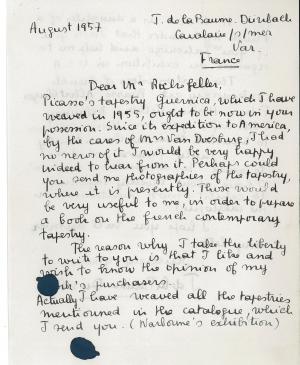 August 1957
J. de la Baume. Durrbach
Cavalaire s/mer
Var.
France
Dear Mr Rockfeller,
Picasso's tapestry Guernica, which I have
weaved in 1955, ought to be now in your
possession. Since its expedition to America,
by the cares of Mrs Van Doesburg, I had
no news of it. I would be very happy
indeed to hear from it. Perhaps could
you send me photographies of the tapestry,
where it is presently. Those would
be very useful to me, in order to prepare
a book on the french contemporary
tapestry.
The reason why I take the liberty
to write to you is that I like and
wish to know the opinion of my
purchasers.
Actually I have weaved all the tapestries
mentionned in the catalogue, which
I send you. ( exhibition)